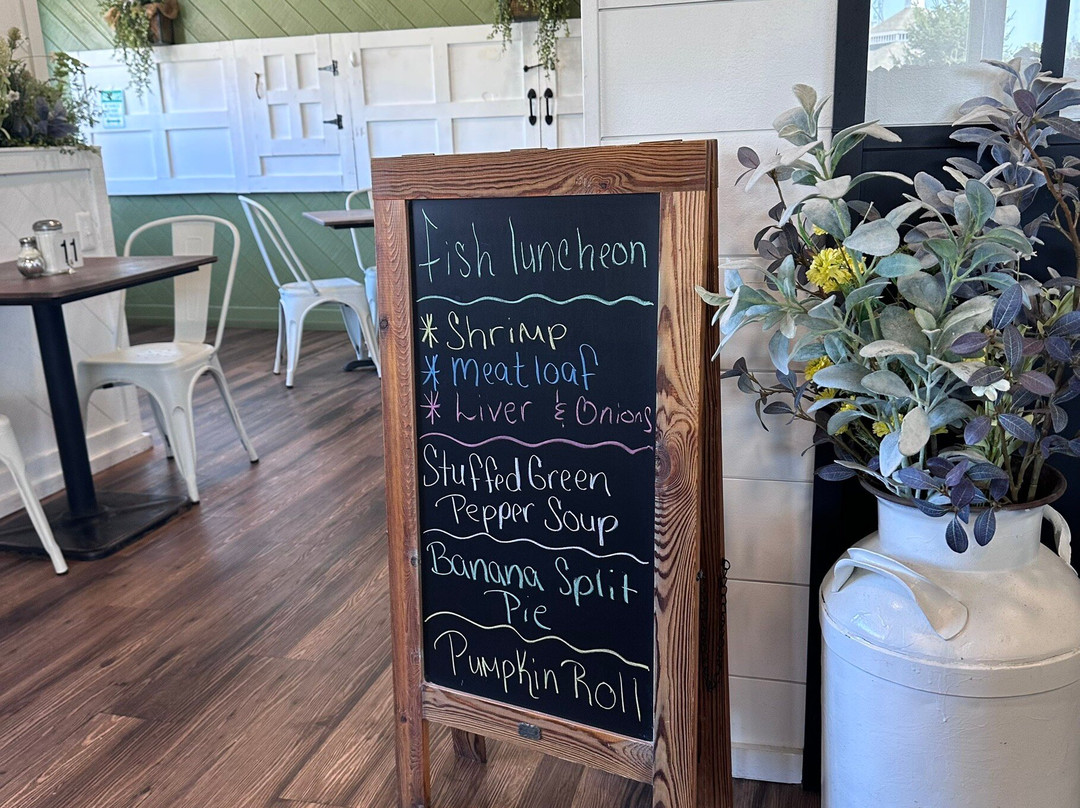 11
Fish luncheon
* Shrimp
* Meatloaf
* Liver & Onions
Stuffed Green
Pepper Soup
Banana Split
Pie
Pumpkin Roll